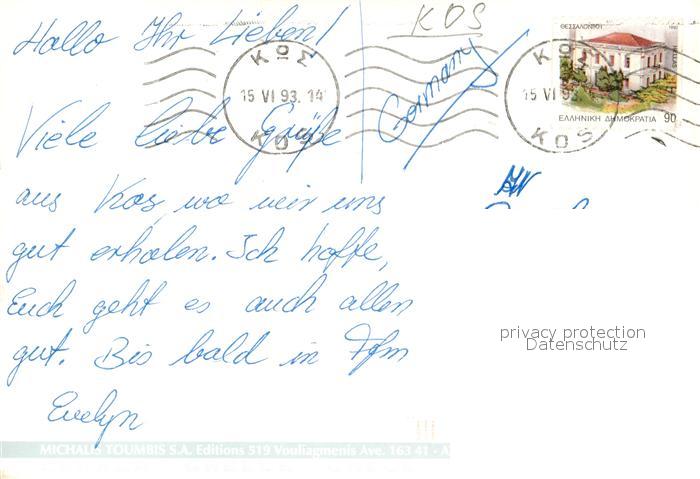 KOS
Hallo Ihr Lieben!
ΚΩΣ
15 VI 93. 14
KOS
Germany
ΘΕΣΣΑΛΟΝΙΚΗ
HELLAS
ΕΛΛΗΝΙΚΗ ΔΗΜΟΚΡΑΤΙΑ 90
ΚΩΣ
15 VI 93
KOS
Viele liebe Grüße
aus Kos, wo wir uns
gut erholen. Ich hoffe,
Euch geht es auch allen
gut. Bis bald in Ffm
Evelyn
privacy protection
Datenschutz
MICHALIS TOUMBIS S.A. Editions 519 Vouliagmenis Ave. 163 41 - A